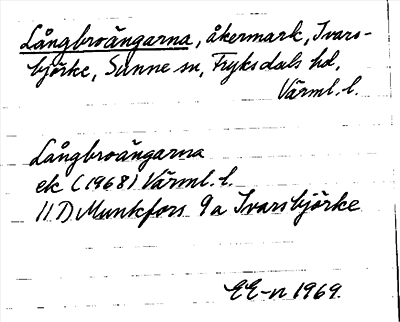 Långbroängarna, åkermark, Ivars-
björke, Sunne sn, Fryksdals hd,
Värml. l.
Långbroängarna
ek (1968) Värml. l.
11 D Munkfors 9a Ivarsbjörke
EE-n 1969.